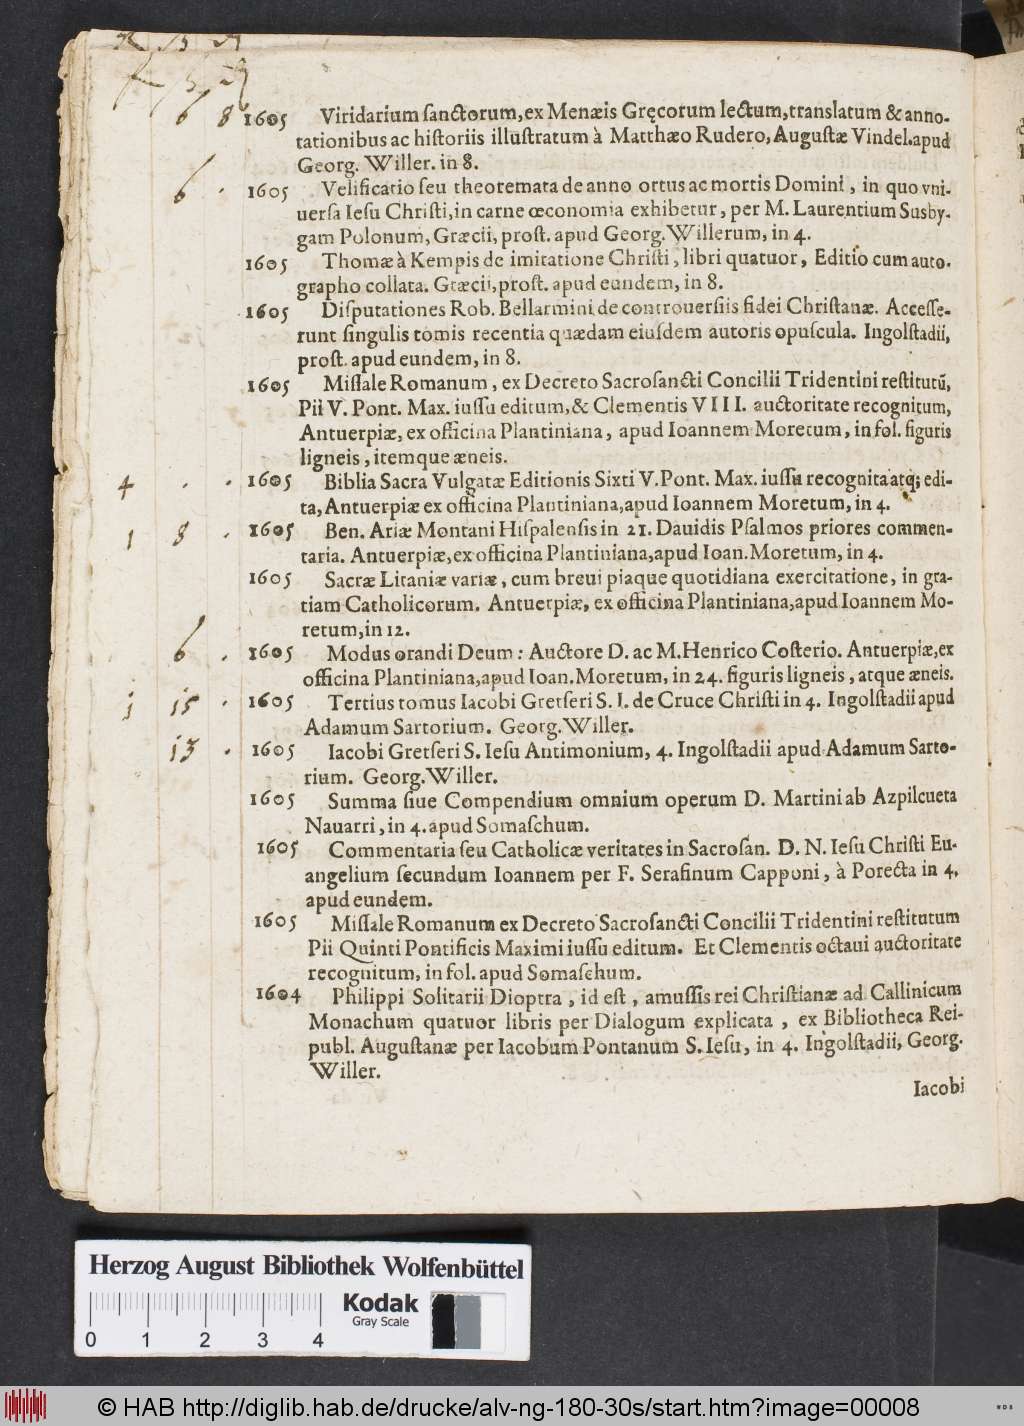 6 8 1605 Viridarium ſanctorum, ex Menæis Gręcorum lectum, translatum & anno-
tationibus ac hiſtoriis illuſtratum à Matthæo Rudero, Auguſtæ Vindel. apud
Georg. Willer. in 8.
6 . 1605 Velificatio ſeu theoremata de anno ortus ac mortis Domini, in quo vni-
uerſa Ieſu Chriſti, in carne œconomia exhibetur, per M. Laurentium Susby-
gam Polonum, Græcii, proſt. apud Georg. Willerum, in 4.
1605 Thomæ à Kempis de imitatione Chriſti, libri quatuor, Editio cum auto-
grapho collata. Græcii, proſt. apud eundem, in 8.
1605 Diſputationes Rob. Bellarmini de controuerſiis fidei Chriſtianæ. Acceſſe-
runt ſingulis tomis recentia quædam eiuſdem autoris opuſcula. Ingolſtadii,
proſt. apud eundem, in 8.
1605 Miſſale Romanum, ex Decreto Sacroſancti Concilii Tridentini reſtitutũ,
Pii V. Pont. Max. iuſſu editum, & Clementis VIII. auctoritate recognitum,
Antuerpiæ, ex officina Plantiniana, apud Ioannem Moretum, in fol. figuris
ligneis, itemque æneis.
4 . . 1605 Biblia Sacra Vulgatæ Editionis Sixti V. Pont. Max. iuſſu recognita atq; edi-
ta, Antuerpiæ ex officina Plantiniana, apud Ioannem Moretum, in 4.
1 8 . 1605 Ben. Ariæ Montani Hiſpalenſis in 21. Dauidis Pſalmos priores commen-
taria. Antuerpiæ, ex officina Plantiniana, apud Ioan. Moretum, in 4.
1605 Sacræ Litaniæ variæ, cum breui piaque quotidiana exercitatione, in gra-
tiam Catholicorum. Antuerpiæ, ex officina Plantiniana, apud Ioannem Mo-
retum, in 12.
6 . 1605 Modus orandi Deum: Auctore D. ac M. Henrico Coſterio. Antuerpiæ, ex
officina Plantiniana, apud Ioan. Moretum, in 24. figuris ligneis, atque æneis.
j 15 . 1605 Tertius tomus Iacobi Gretſeri S. I. de Cruce Chriſti in 4. Ingolſtadii apud
Adamum Sartorium. Georg. Willer.
13 . 1605 Iacobi Gretſeri S. Ieſu Antimonium, 4. Ingolſtadii apud Adamum Sarto-
rium. Georg. Willer.
1605 Summa ſiue Compendium omnium operum D. Martini ab Azpilcueta
Nauarri, in 4. apud Somaſchum.
1605 Commentaria ſeu Catholicæ veritates in Sacroſan. D. N. Ieſu Chriſti Eu-
angelium ſecundum Ioannem per F. Serafinum Capponi, à Porecta in 4.
apud eundem.
1605 Miſſale Romanum ex Decreto Sacroſancti Concilii Tridentini reſtitutum
Pii Quinti Pontificis Maximi iuſſu editum. Et Clementis octaui auctoritate
recognitum, in fol. apud Somaſchum.
1604 Philippi Solitarii Dioptra, id eſt, amuſſis rei Chriſtianæ ad Callinicum
Monachum quatuor libris per Dialogum explicata, ex Bibliotheca Rei-
publ. Auguſtanæ per Iacobum Pontanum S. Ieſu, in 4. Ingolſtadii, Georg.
Willer.
Iacobi
Herzog August Bibliothek Wolfenbüttel
Kodak
Gray Scale
0 1 2 3 4
© HAB http://diglib.hab.de/drucke/alv-ng-180-30s/start.htm?image=00008